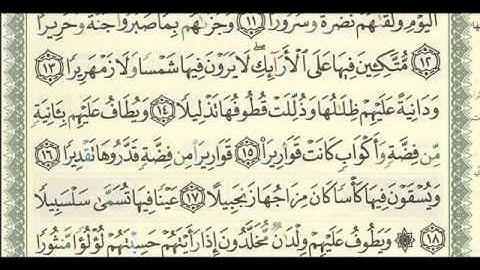 ٱلْيَوْمِ وَلَقَّىٰهُمْ نَضْرَةً وَسُرُورًا ۝١١ وَجَزَىٰهُم بِمَا صَبَرُوا۟ جَنَّةً وَحَرِيرًا
۝١٢ مُّتَّكِـِٔينَ فِيهَا عَلَى ٱلْأَرَآئِكِ ۖ لَا يَرَوْنَ فِيهَا شَمْسًا وَلَا زَمْهَرِيرًا ۝١٣
وَدَانِيَةً عَلَيْهِمْ ظِلَـٰلُهَا وَذُلِّلَتْ قُطُوفُهَا تَذْلِيلًا ۝١٤ وَيُطَافُ عَلَيْهِم بِـَٔانِيَةٍ
مِّن فِضَّةٍ وَأَكْوَابٍ كَانَتْ قَوَارِيرَا۠ ۝١٥ قَوَارِيرَا۟ مِن فِضَّةٍ قَدَّرُوهَا تَقْدِيرًا ۝١٦
وَيُسْقَوْنَ فِيهَا كَأْسًا كَانَ مِزَاجُهَا زَنجَبِيلًا ۝١٧ عَيْنًا فِيهَا تُسَمَّىٰ سَلْسَبِيلًا
۝١٨ ۞ وَيَطُوفُ عَلَيْهِمْ وِلْدَٰنٌ مُّخَلَّدُونَ إِذَا رَأَيْتَهُمْ حَسِبْتَهُمْ لُؤْلُؤًا مَّنثُورًا